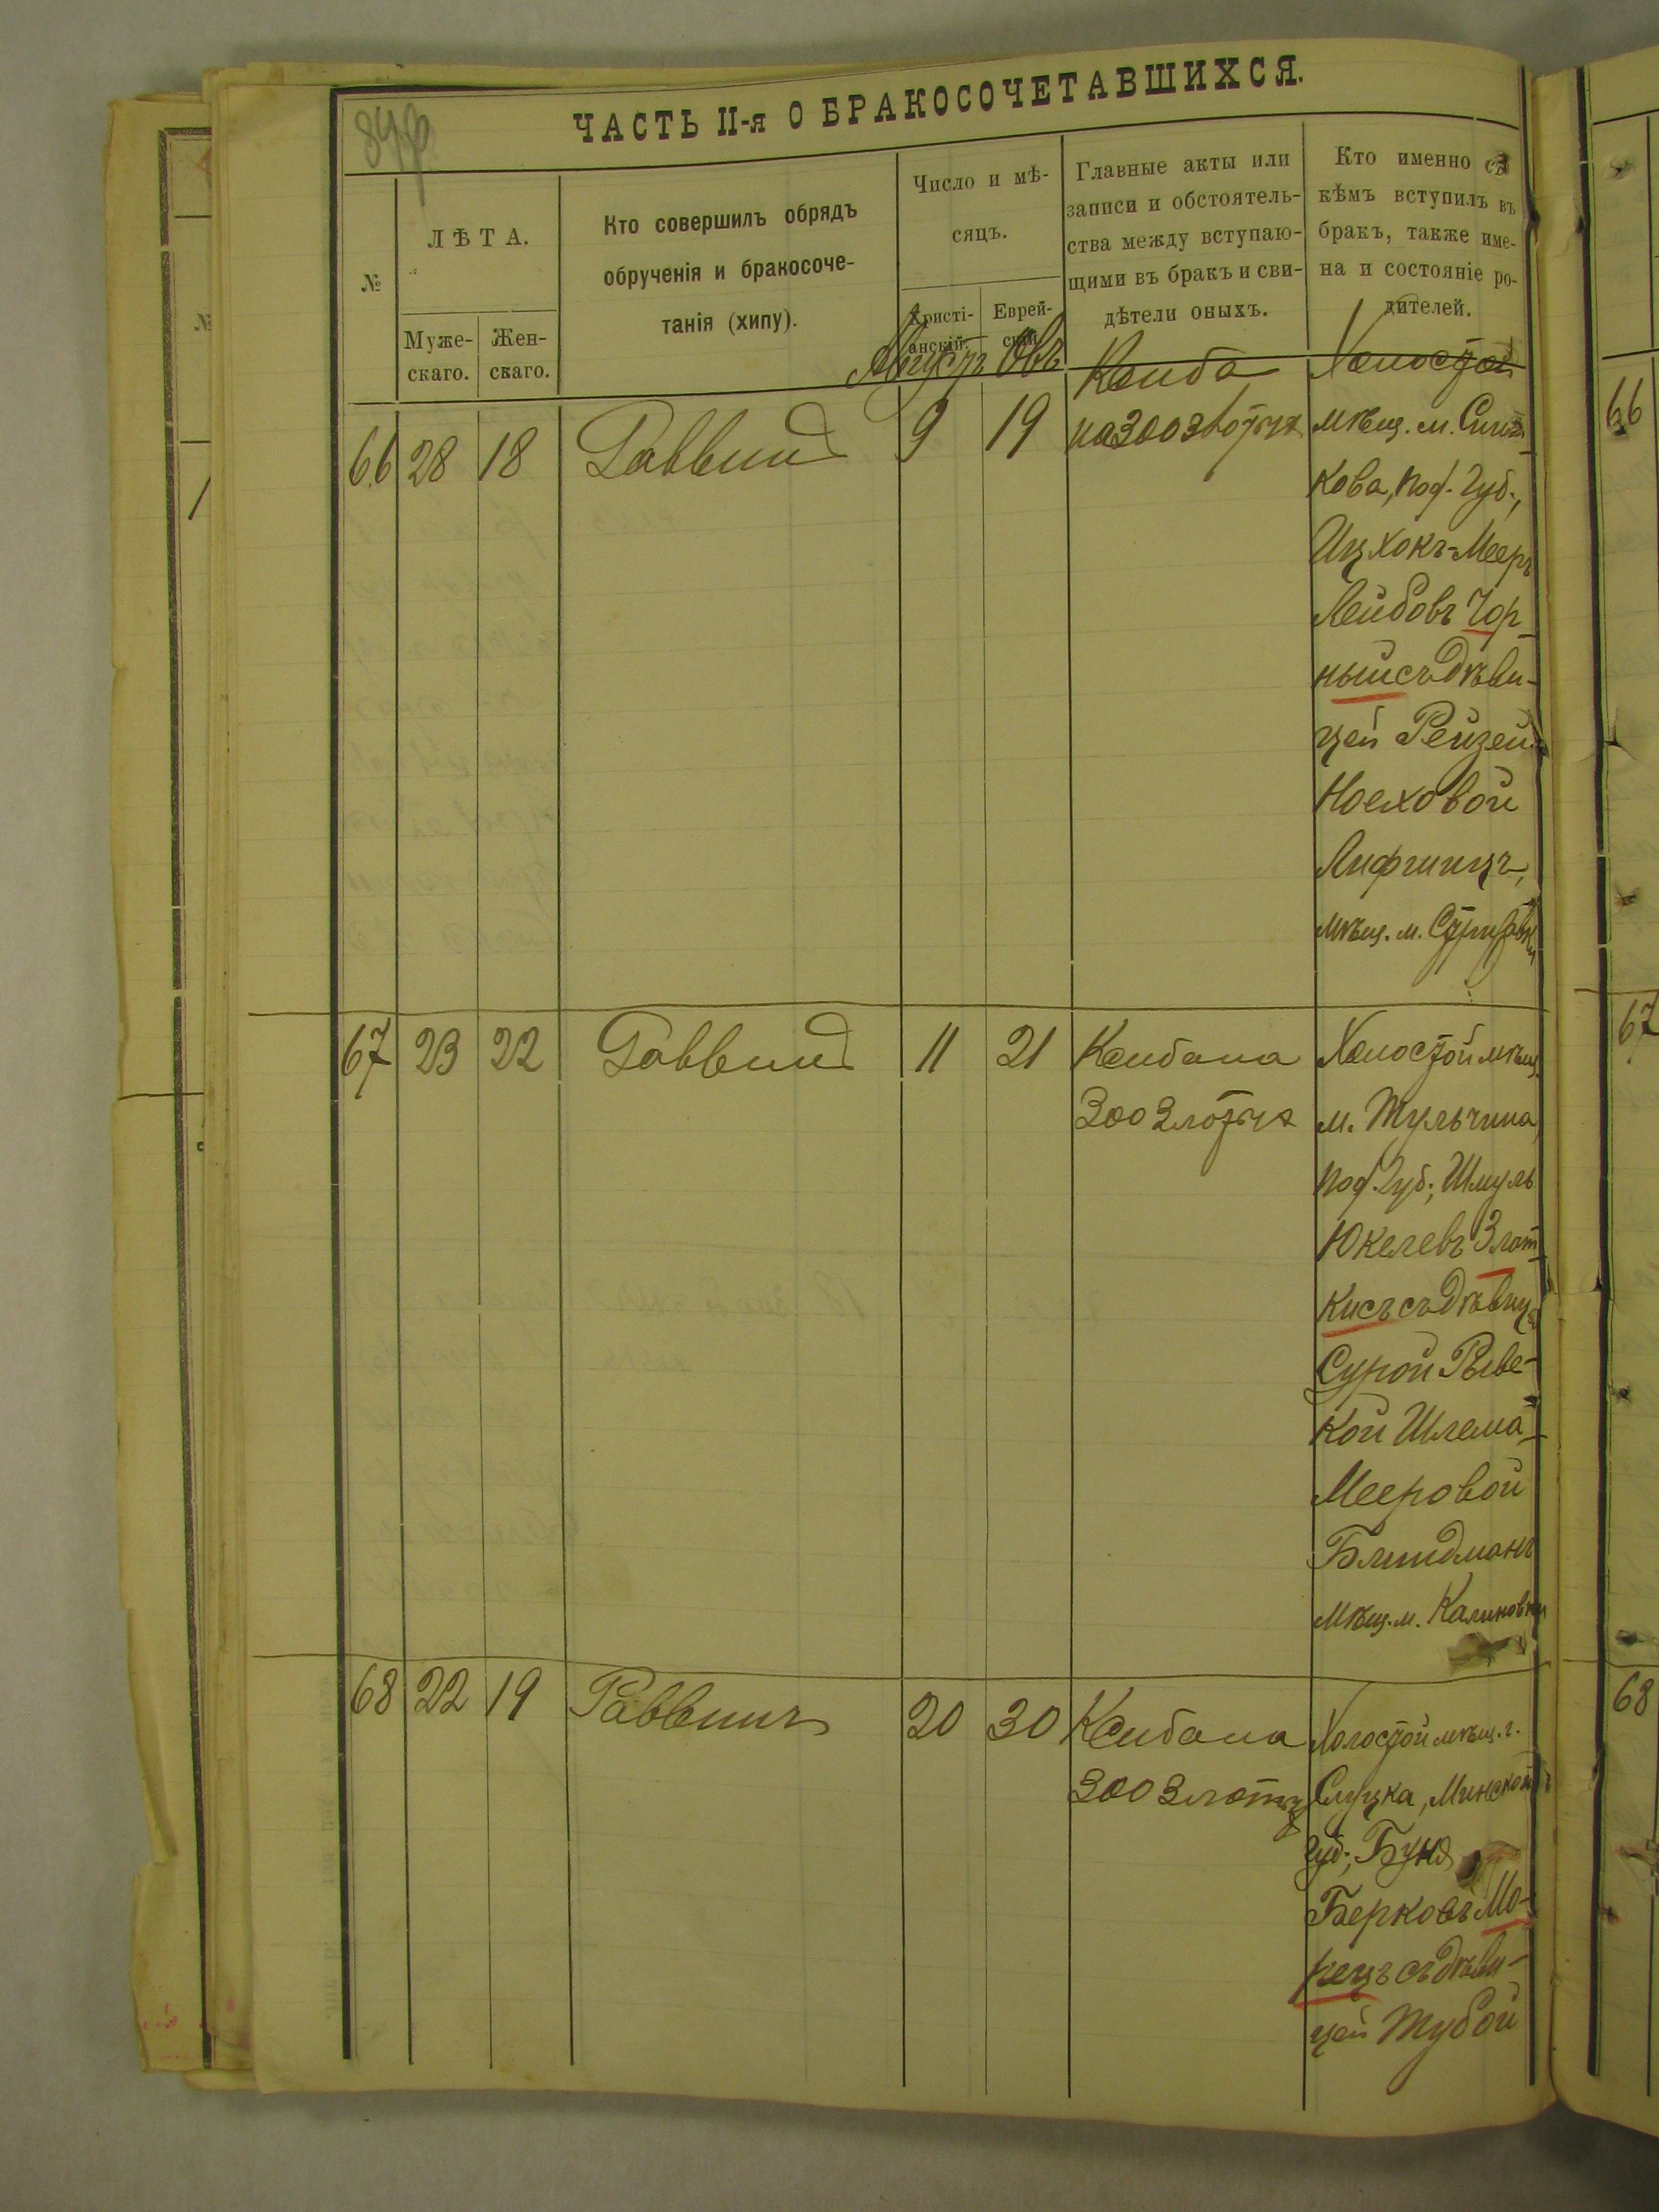 ЧАСТЬ II-я О БРАКОСОЧЕТАВШИХСЯ.
№
ЛѢТА.
Муже-
скаго.
Жен-
скаго.
Кто совершилъ обрядъ
обрученія и бракосоче-
танія (хипу).
Число и мѣ-
сяцъ.
Христі-
анскій.
Еврей-
скій.
Главные акты или
записи и обстоятель-
ства между вступаю-
щими въ бракъ и сви-
дѣтели оныхъ.
Кто именно съ
кѣмъ вступилъ въ
бракъ, также име-
на и состояніе ро-
дителей.
Августъ Овъ
66 28 18 Раввинъ 9 19
Ксиба
на 300 злотыхъ
Холостой
мѣщ. м.
кова, Под. Губ.,
Ицхокъ-Мееръ
Лейбовъ Чор-
ный съ дѣви-
цей Рейзей
Ноеховой
Лифшицъ,
мѣщ. м. Стрижавки
67 23 22 Раввинъ 11 21
Ксиба на
300 злотыхъ
Холостой мѣщ.
м. Тульчина
Под. Губ., Шмуль
Юкелевъ Злот-
кисъ съ дѣвицей
Сурой Рыве-
кой Шлема-
Мееровой
Блиндманъ
мѣщ. м. Калиновки
68 22 19 Раввинъ 20 30
Ксиба на
300 злотыхъ
Холостой мѣщ. г.
Слуцка, Минской
Губ.,
Берковъ Мо-
рецъ съ дѣви-
цей Тубой
66
67
68